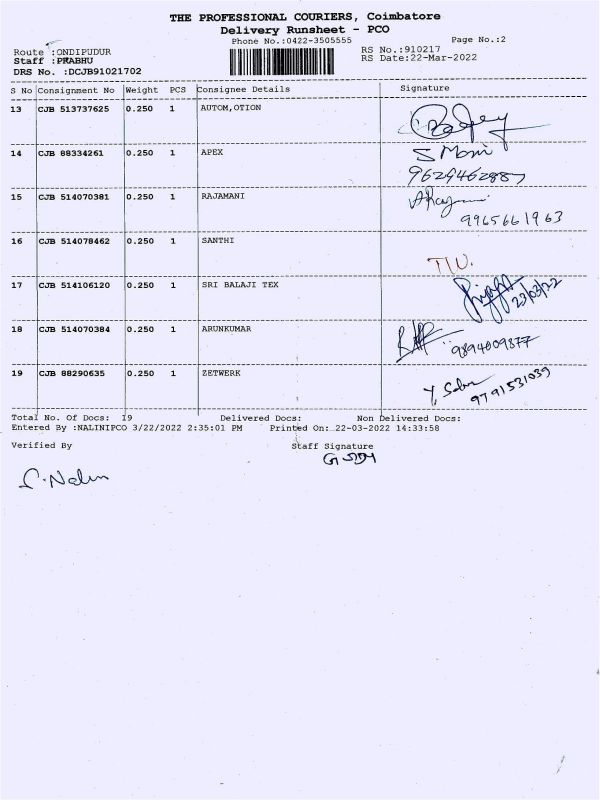 THE PROFESSIONAL COURIERS, Coimbatore
Delivery Runsheet - PCO
Phone No.:0422-3505555
Page No.:2
Route :ONDIPUDUR
RS No.:910217
Staff :PRABHU
RS Date:22-Mar-2022
DRS No. :DCJB91021702
S No Consignment No Weight PCS Consignee Details Signature
13 CJB 513737625 0.250 1 AUTOM,OTION
14 CJB 88334261 0.250 1 APEX S Mani
9629462887
15 CJB 514070381 0.250 1 RAJAMANI
9965661963
16 CJB 514078462 0.250 1 SANTHI
17 CJB 514106120 0.250 1 SRI BALAJI TEX 23/03/22
18 CJB 514070384 0.250 1 ARUNKUMAR
9894009377
19 CJB 88290635 0.250 1 ZETWERK
9791531039
Total No. Of Docs: 19 Delivered Docs: Non Delivered Docs:
Entered By :NALINIPCO 3/22/2022 2:35:01 PM Printed On: 22-03-2022 14:33:58
Verified By Staff Signature
S.Nalin